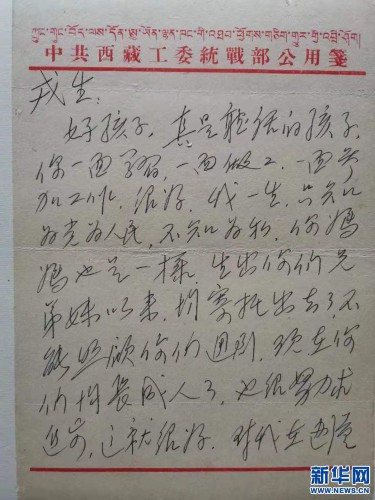 中共西藏工委統戰部公用箋
戎生:
好孩子,真是聽话的孩子,
你一面学习,一面做工,一面参
加工作,很好,我一生,只知
为党为人民,不知为私,你妈
妈也是一樣,生出你们兄
弟妹以来,均寄托出去了,不
能照顧你们週到,现在你
们均長成人了,也很努力求
进步,这就很好,对我在边境
新华网